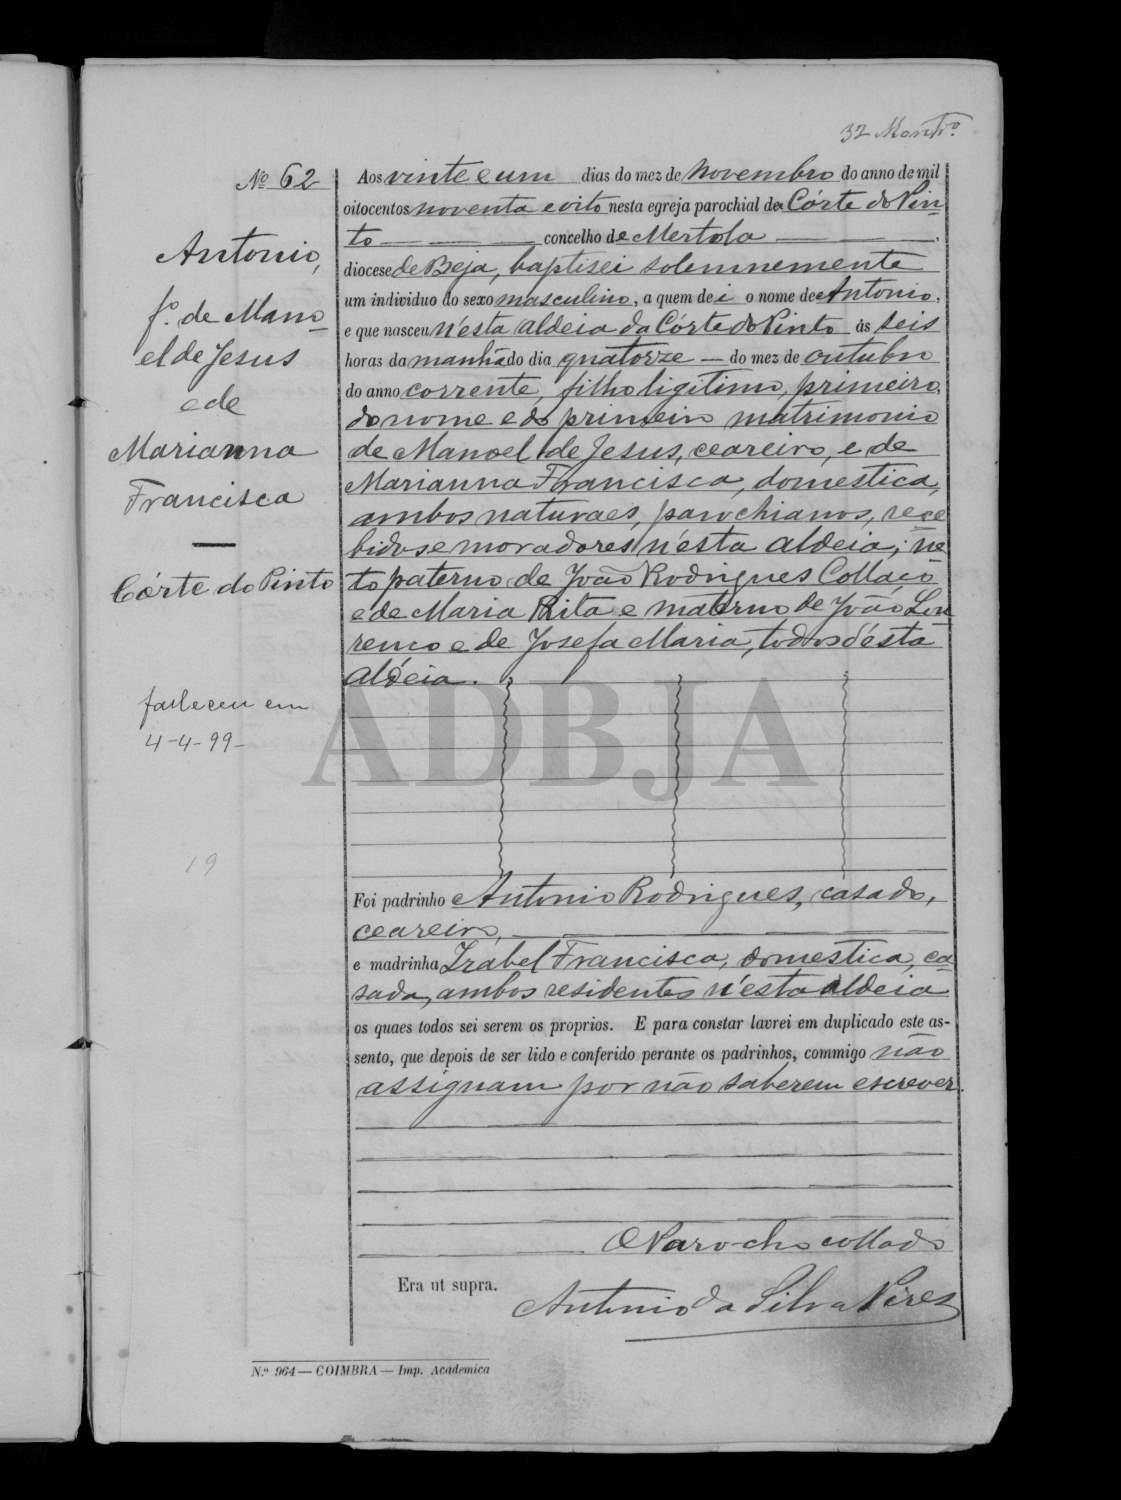 32
Nº 62
Antonio,
fº. de Mano-
el de Jesus
e de
Marianna
Francisca
Córte do Pinto
falleceu em
4-4-99-
19
Aos vinte e um dias do mez de Novembro do anno de mil
oitocentos noventa e oito nesta egreja parochial da Córte do Pin-
to concelho de Mertola
diocese de Beja, baptisei solemnemente
um individuo do sexo masculino, a quem dei o nome de Antonio,
e que nasceu n'esta aldeia da Córte do Pinto ás seis
horas da manhã do dia quatorze do mez de outubro
do anno corrente, filho ligitimo, primeiro,
do nome e do primeiro matrimonio
de Manoel de Jesus, ceareiro, e de
Marianna Francisca, domestica,
ambos naturaes, parochianos, rece-
bidos e moradores n'esta aldeia; ne-
to paterno de João Rodrigues Collaço
e de Maria Rita e materno de João Lou-
renco e de Josefa Maria, todos d'esta
aldeia.
ADBJA
Foi padrinho Antonio Rodrigues, casado,
ceareiro,
e madrinha Izabel Francisca, domestica, ca-
sada, ambos residentes n'esta aldeia
os quaes todos sei serem os proprios. E para constar lavrei em duplicado este as-
sento, que depois de ser lido e conferido perante os padrinhos, commigo não
assignam por não saberem escrever.
O Parocho collado
Era ut supra.
Antonio da Silva Pires
N.º 964 — COIMBRA — Imp. Academica